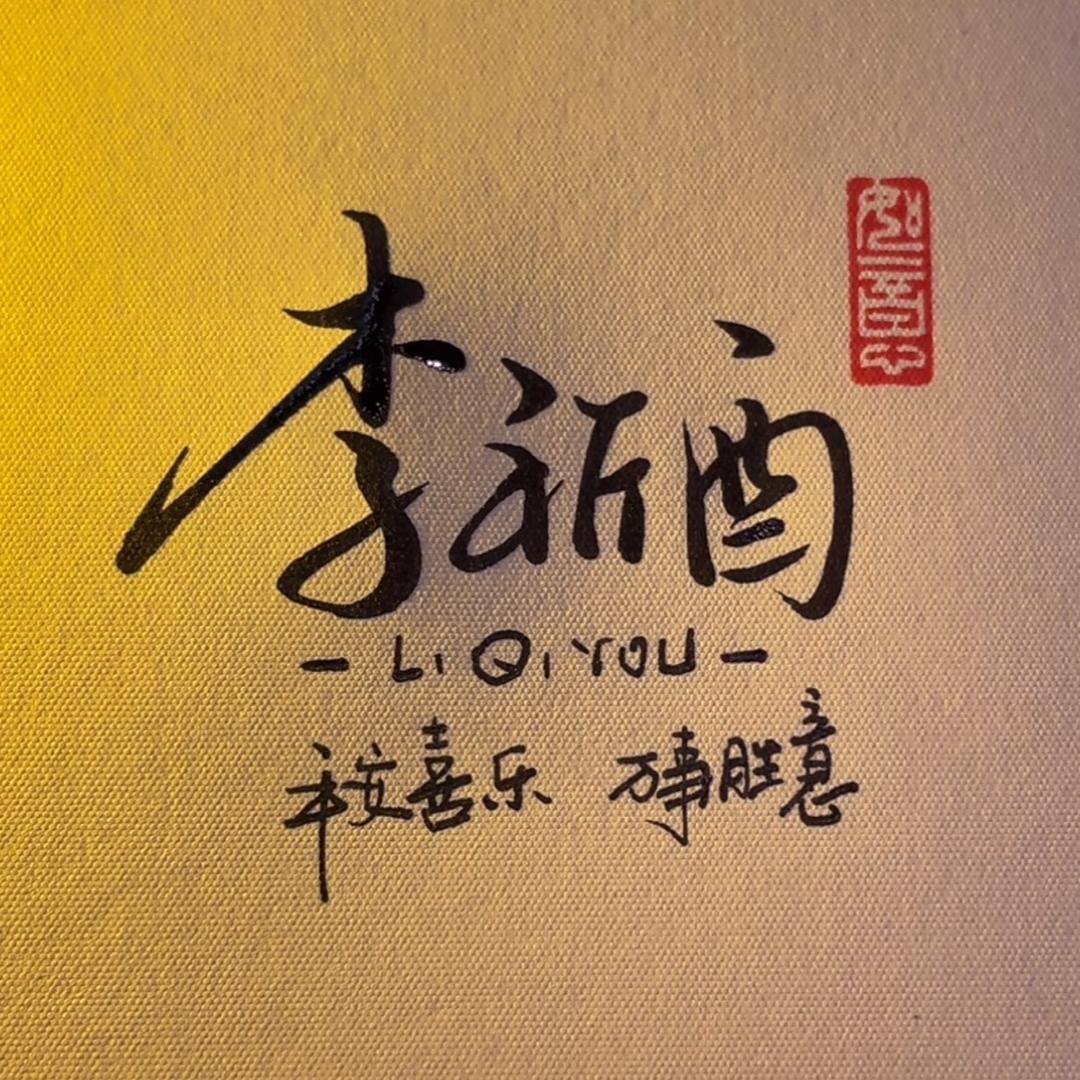 如意
李祈酉
- LI QI YOU -
平安喜乐 万事胜意